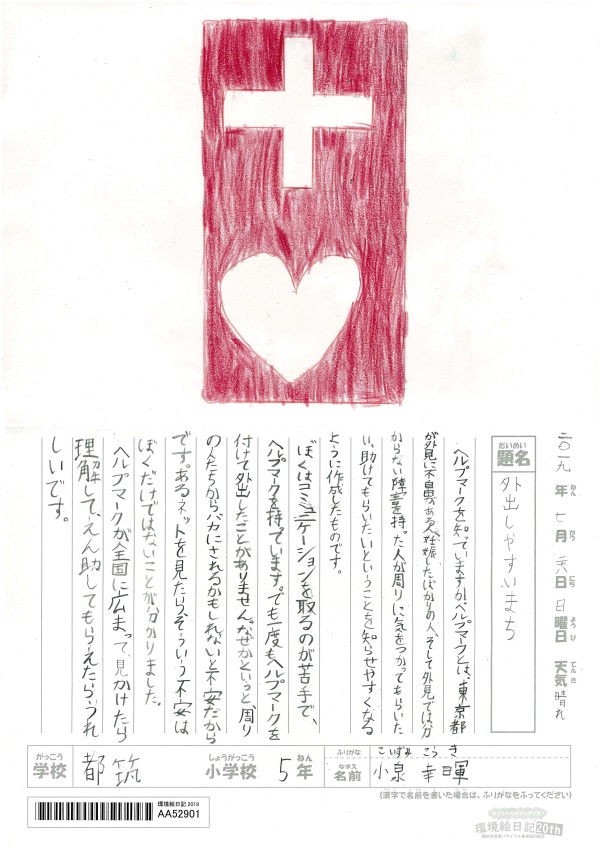 二〇一九年七月二八日日曜日 天気 晴れ
ねん がつ にち ようび てんき
だいめい
題名 外出しやすいまち
ヘルプマークを知っていますか。ヘルプマークとは、東京都
が外見に不自由がある人、妊娠したばかりの人、そして外見では分
からない障害を持った人が周りに気をつかってもらいた
い、助けてもらいたいということを知らせやすくなる
ように作成したものです。
ぼくはコミュニケーションを取るのが苦手で、
ヘルプマークを持っています。でも一度もヘルプマークを
付けて外出したことがありません。なぜかというと周り
の人たちからバカにされるかもしれないと不安だから
です。あるネットを見たらそういう不安は
ぼくだけではないことが分かりました。
ヘルプマークが全国に広まって、見かけたら
理解して、えん助してもらえたら、うれ
しいです。
がっこう しょうがっこう ねん ふりがな こいずみ こうき
学校 都筑 小学校 5年 なまえ 名前 小泉 幸暉
(漢字で名前を書いた場合は、ふりがなをふってください)
環境絵日記2019
AA52901
環境絵日記20th